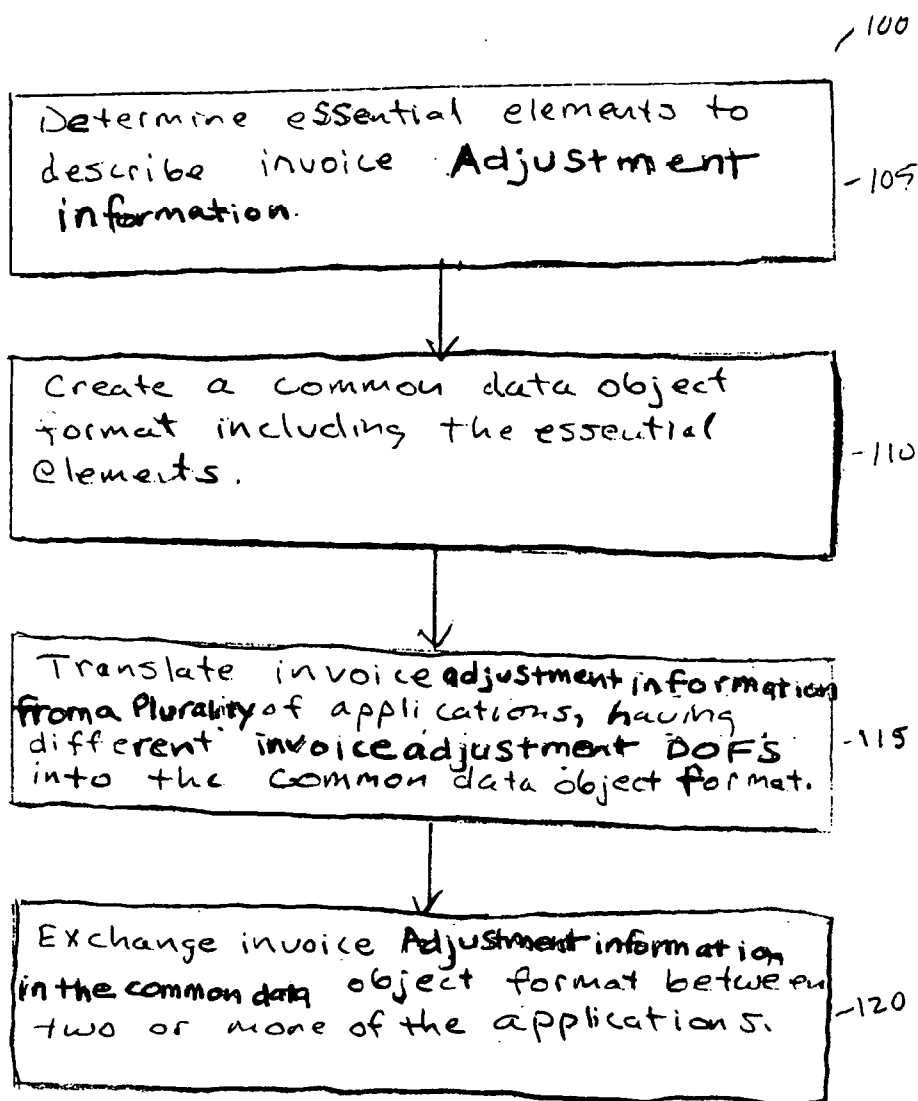 100
Determine essential elements to
describe invoice Adjustment
information.
- 105
Create a common data object
format including the essential
elements.
- 110
Translate invoice adjustment information
from a Plurality of applications, having
different invoice adjustment DOF's
into the common data object format.
- 115
Exchange invoice Adjustment information
in the common data object format between
two or more of the applications.
- 120